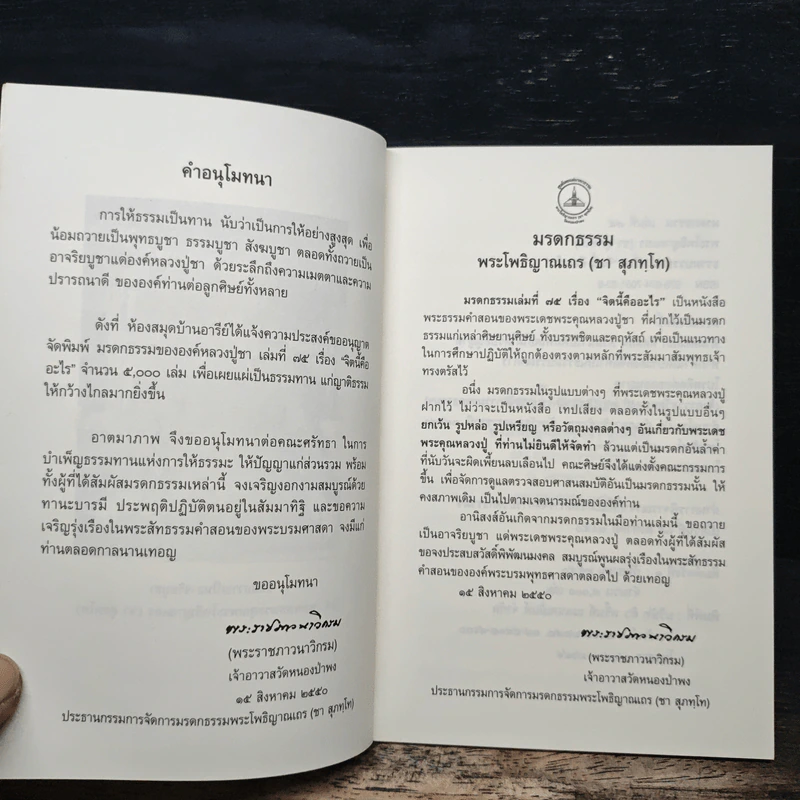 คำอนุโมทนา
การให้ธรรมเป็นทาน นับว่าเป็นการให้อย่างสูงสุด เพื่อ
น้อมถวายเป็นพุทธบูชา ธรรมบูชา สังฆบูชา ตลอดทั้งถวายเป็น
อาจริยบูชาแด่องค์หลวงปู่ชา ด้วยระลึกถึงความเมตตาและความ
ปรารถนาดี ขององค์ท่านต่อลูกศิษย์ทั้งหลาย
ดังที่ ห้องสมุดบ้านอารีย์ได้แจ้งความประสงค์ขออนุญาต
จัดพิมพ์ มรดกธรรมขององค์หลวงปู่ชา เล่มที่ ๗๕ เรื่อง "จิตนี้คือ
อะไร" จำนวน ๕,๐๐๐ เล่ม เพื่อเผยแผ่เป็นธรรมทาน แก่ญาติธรรม
ให้กว้างไกลมากยิ่งขึ้น
อาตมาภาพ จึงขออนุโมทนาต่อคณะศรัทธา ในการ
บำเพ็ญธรรมทานแห่งการให้ธรรมะ ให้ปัญญาแก่ส่วนรวม พร้อม
ทั้งผู้ที่ได้สัมผัสมรดกธรรมเหล่านี้ จงเจริญงอกงามสมบูรณ์ด้วย
ทานะบารมี ประพฤติปฏิบัติตนอยู่ในสัมมาทิฐิ และขอความ
เจริญรุ่งเรืองในพระสัทธรรมคำสอนของพระบรมศาสดา จงมีแก่
ท่านตลอดกาลนานเทอญ
ขออนุโมทนา
พระราชภาวนาวิกรม
(พระราชภาวนาวิกรม)
เจ้าอาวาสวัดหนองป่าพง
๑๕ สิงหาคม ๒๕๕๐
ประธานกรรมการจัดการมรดกธรรมพระโพธิญาณเถร (ชา สุภทฺโท)
มรดกธรรม
พระโพธิญาณเถร (ชา สุภทฺโท)
มรดกธรรมเล่มที่ ๗๕ เรื่อง "จิตนี้คืออะไร" เป็นหนังสือ
พระธรรมคำสอนของพระเดชพระคุณหลวงปู่ชา ที่ฝากไว้เป็นมรดก
ธรรมแก่เหล่าศิษยานุศิษย์ ทั้งบรรพชิตและคฤหัสถ์ เพื่อเป็นแนวทาง
ในการศึกษาปฏิบัติให้ถูกต้องตรงตามหลักที่พระสัมมาสัมพุทธเจ้า
ทรงตรัสไว้
อนึ่ง มรดกธรรมในรูปแบบต่างๆ ที่พระเดชพระคุณหลวงปู่
ฝากไว้ ไม่ว่าจะเป็นหนังสือ เทปเสียง ตลอดทั้งในรูปแบบอื่นๆ
ยกเว้น รูปหล่อ รูปเหรียญ หรือวัตถุมงคลต่างๆ อันเกี่ยวกับพระเดช
พระคุณหลวงปู่ ที่ท่านไม่ยินดีให้จัดทำ ล้วนแต่เป็นมรดกอันล้ำค่า
ที่นับวันจะผิดเพี้ยนลบเลือนไป คณะศิษย์จึงได้แต่งตั้งคณะกรรมการ
ขึ้น เพื่อจัดการดูแลตรวจสอบศาสนสมบัติอันเป็นมรดกธรรมนั้น ให้
คงสภาพเดิม เป็นไปตามเจตนารมณ์ขององค์ท่าน
อานิสงส์อันเกิดจากมรดกธรรมในมือท่านเล่มนี้ ขอถวาย
เป็นอาจริยบูชา แด่พระเดชพระคุณหลวงปู่ ตลอดทั้งผู้ที่ได้สัมผัส
ขอจงประสบสวัสดิ์พิพัฒนมงคล สมบูรณ์พูนผลรุ่งเรืองในพระสัทธรรม
คำสอนขององค์พระบรมพุทธศาสดาตลอดไป ด้วยเทอญ
๑๕ สิงหาคม ๒๕๕๐
พระราชภาวนาวิกรม
(พระราชภาวนาวิกรม)
เจ้าอาวาสวัดหนองป่าพง
ประธานกรรมการจัดการมรดกธรรมพระโพธิญาณเถร (ชา สุภทฺโท)